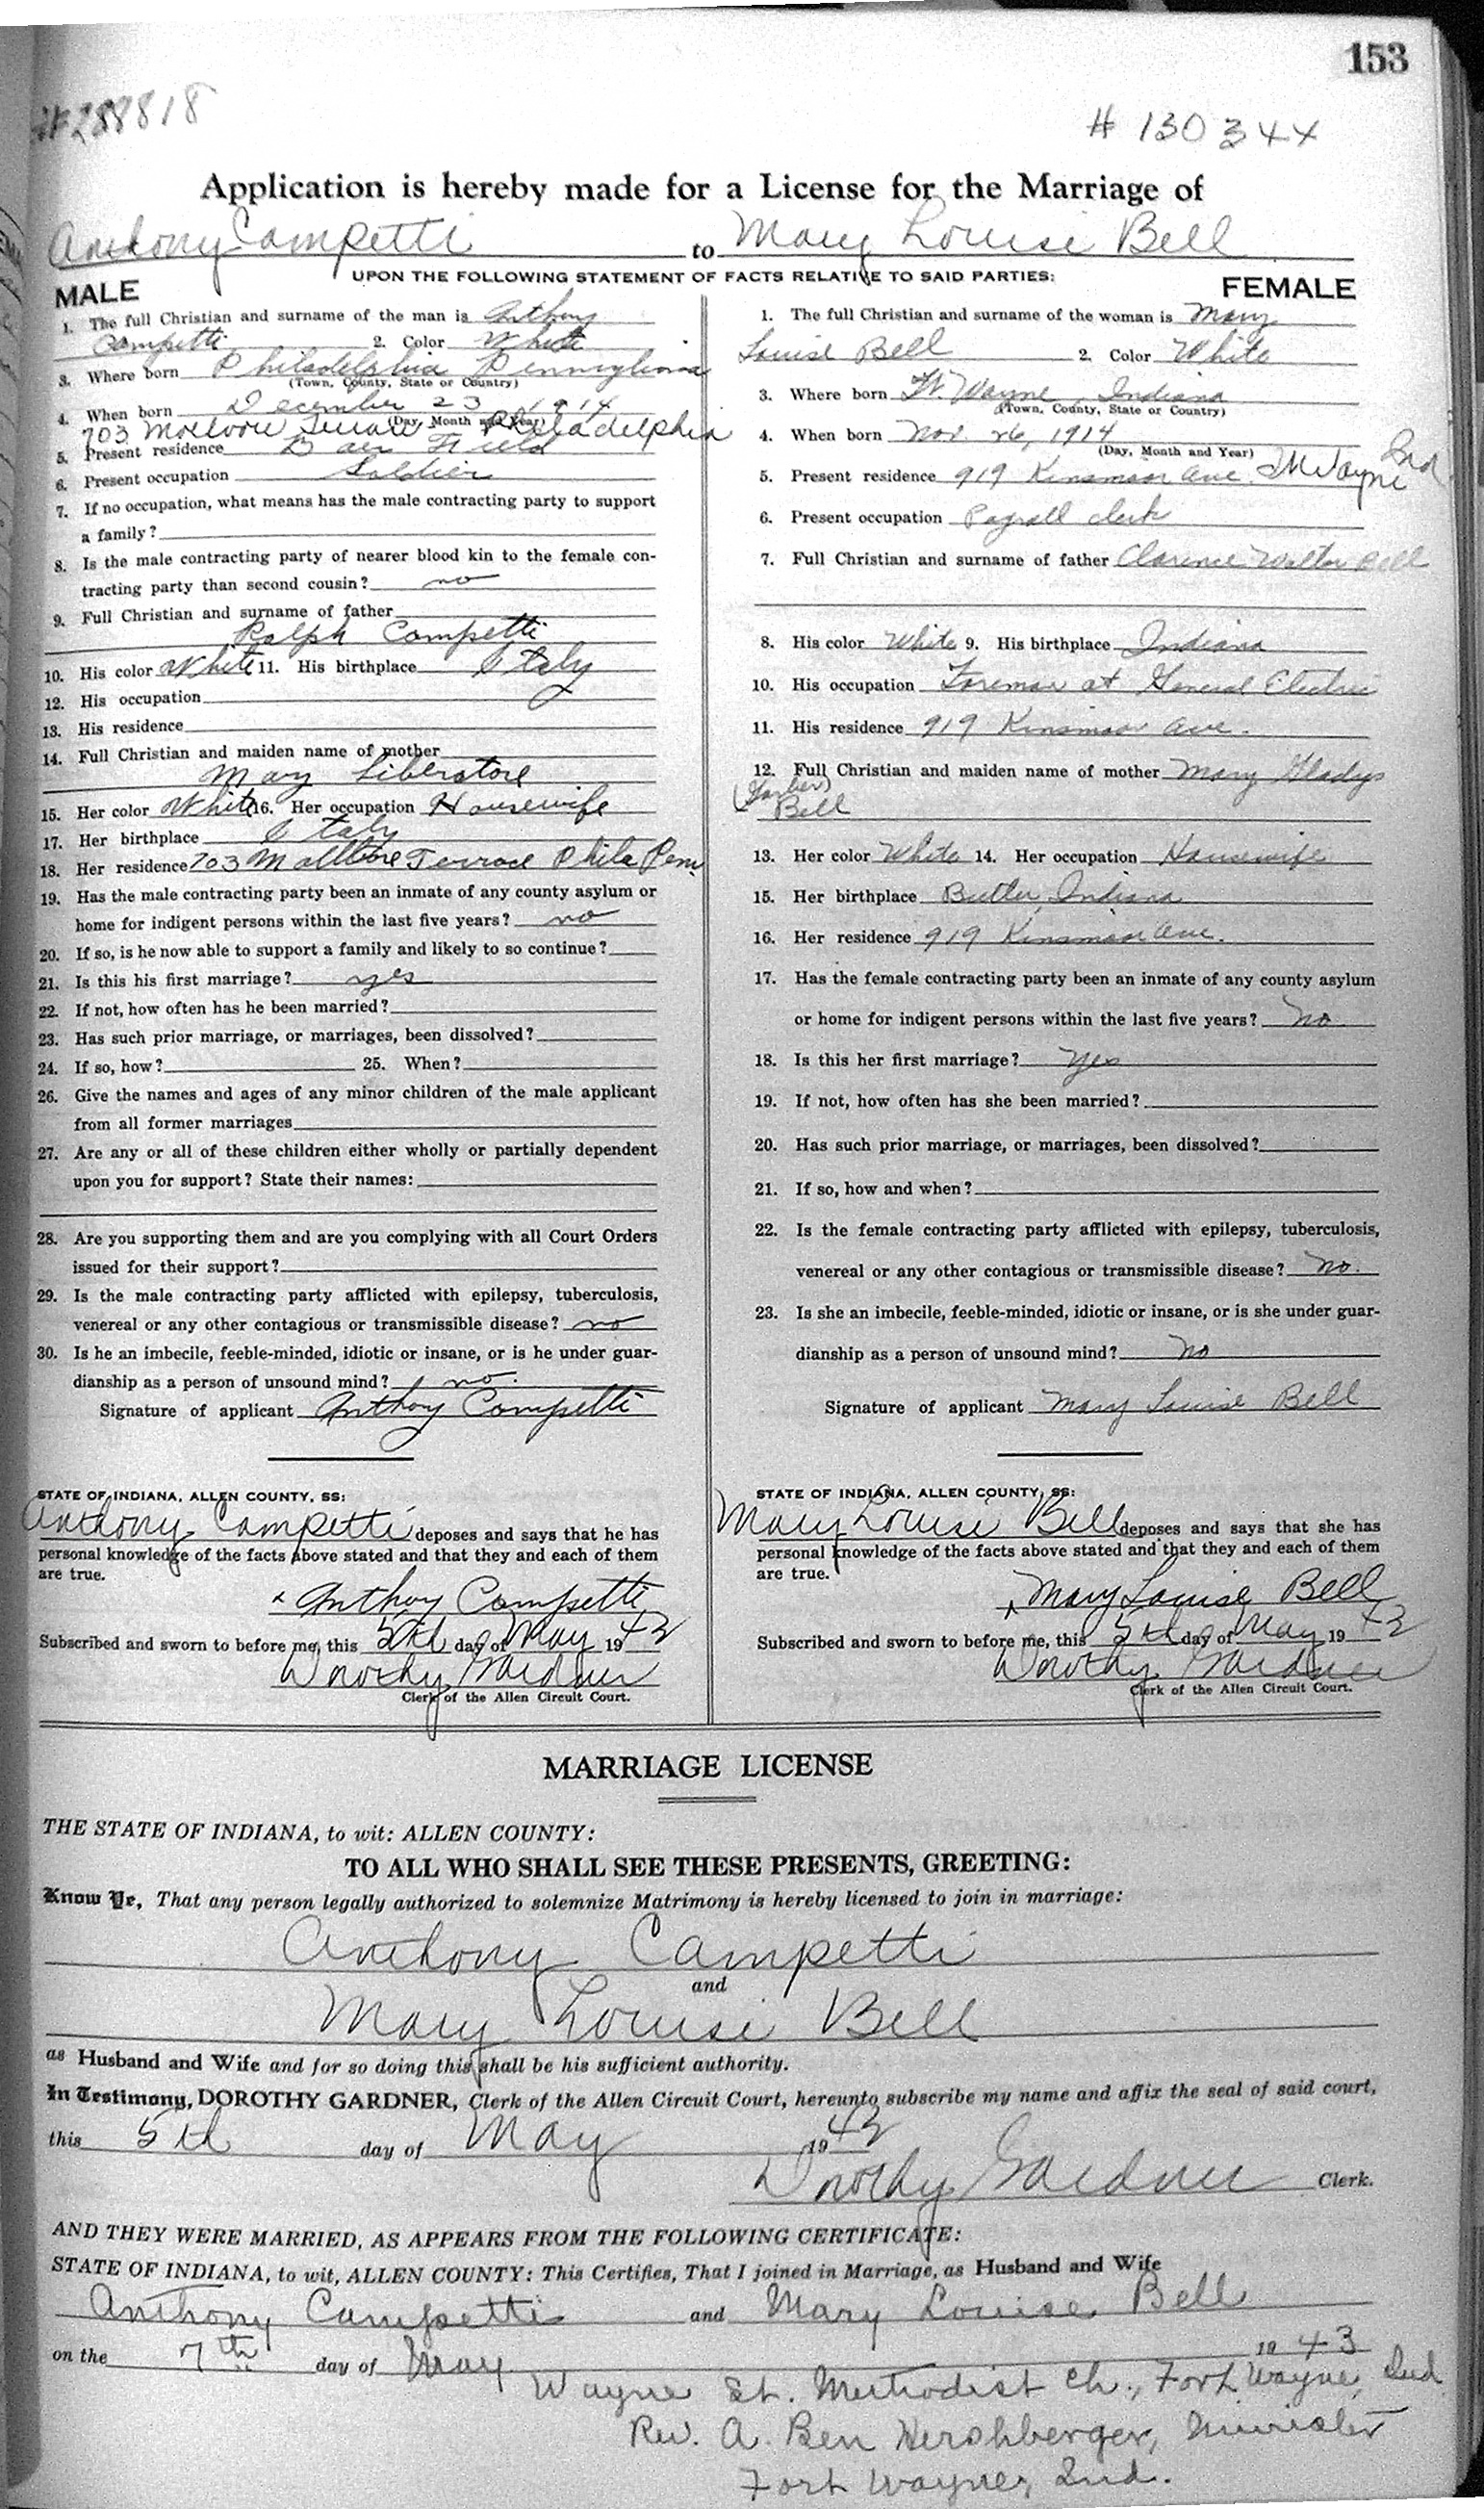 153
#288818
# 130344
Application is hereby made for a License for the Marriage of
Anthony Campetti to Mary Louise Bell
UPON THE FOLLOWING STATEMENT OF FACTS RELATIVE TO SAID PARTIES:
MALE
1. The full Christian and surname of the man is Anthony
Campetti 2. Color White
3. Where born Philadelphia Pennsylvania
(Town, County, State or Country)
4. When born December 23 1914
(Day, Month and Year)
703 Terrace Philadelphia
5. Present residence Baer Field
6. Present occupation Soldier
7. If no occupation, what means has the male contracting party to support
a family?
8. Is the male contracting party of nearer blood kin to the female con-
tracting party than second cousin? no
9. Full Christian and surname of father
Ralph Campetti
10. His color White 11. His birthplace Italy
12. His occupation
13. His residence
14. Full Christian and maiden name of mother
Mary Liberatore
15. Her color White 16. Her occupation Housewife
17. Her birthplace Italy
18. Her residence 703 Terrace Phila Penn
19. Has the male contracting party been an inmate of any county asylum or
home for indigent persons within the last five years? no
20. If so, is he now able to support a family and likely to so continue?
21. Is this his first marriage? yes
22. If not, how often has he been married?
23. Has such prior marriage, or marriages, been dissolved?
24. If so, how? 25. When?
26. Give the names and ages of any minor children of the male applicant
from all former marriages
27. Are any or all of these children either wholly or partially dependent
upon you for support? State their names:
28. Are you supporting them and are you complying with all Court Orders
issued for their support?
29. Is the male contracting party afflicted with epilepsy, tuberculosis,
venereal or any other contagious or transmissible disease? no
30. Is he an imbecile, feeble-minded, idiotic or insane, or is he under guar-
dianship as a person of unsound mind? no.
Signature of applicant Anthony Campetti
STATE OF INDIANA, ALLEN COUNTY, SS:
Anthony Campetti deposes and says that he has
personal knowledge of the facts above stated and that they and each of them
are true.
x Anthony Campetti
Subscribed and sworn to before me, this 5th day of May 1943
Dorothy Gardner
Clerk of the Allen Circuit Court.
FEMALE
1. The full Christian and surname of the woman is Mary
Louise Bell 2. Color White
3. Where born Ft. Wayne, Indiana
(Town, County, State or Country)
4. When born Nov 26, 1914
(Day, Month and Year)
5. Present residence 919 Kinsmoor Ave. Ft Wayne Ind
6. Present occupation Payroll clerk
7. Full Christian and surname of father Clarence Walter Bell
8. His color White 9. His birthplace Indiana
10. His occupation Foreman at General Electric
11. His residence 919 Kinsmoor Ave.
12. Full Christian and maiden name of mother Mary Gladys
(Garber)
Bell
13. Her color White 14. Her occupation Housewife
15. Her birthplace Butler, Indiana
16. Her residence 919 Kinsmoor Ave.
17. Has the female contracting party been an inmate of any county asylum
or home for indigent persons within the last five years? No
18. Is this her first marriage? Yes
19. If not, how often has she been married?
20. Has such prior marriage, or marriages, been dissolved?
21. If so, how and when?
22. Is the female contracting party afflicted with epilepsy, tuberculosis,
venereal or any other contagious or transmissible disease? No.
23. Is she an imbecile, feeble-minded, idiotic or insane, or is she under guar-
dianship as a person of unsound mind? No
Signature of applicant Mary Louise Bell
STATE OF INDIANA, ALLEN COUNTY, SS:
Mary Louise Bell deposes and says that she has
personal knowledge of the facts above stated and that they and each of them
are true.
x Mary Louise Bell
Subscribed and sworn to before me, this 5th day of May 1943
Dorothy Gardner
Clerk of the Allen Circuit Court.
MARRIAGE LICENSE
THE STATE OF INDIANA, to wit: ALLEN COUNTY:
TO ALL WHO SHALL SEE THESE PRESENTS, GREETING:
Know Ye, That any person legally authorized to solemnize Matrimony is hereby licensed to join in marriage:
Anthony Campetti
and
Mary Louise Bell
as Husband and Wife and for so doing this shall be his sufficient authority.
In Testimony, DOROTHY GARDNER, Clerk of the Allen Circuit Court, hereunto subscribe my name and affix the seal of said court,
this 5th day of May 1943
Dorothy Gardner Clerk.
AND THEY WERE MARRIED, AS APPEARS FROM THE FOLLOWING CERTIFICATE:
STATE OF INDIANA, to wit, ALLEN COUNTY: This Certifies, That I joined in Marriage, as Husband and Wife
Anthony Campetti and Mary Louise Bell
on the 7th day of May 1943
Wayne St. Methodist Ch., Fort Wayne, Ind
Rev. A. Ben Hershberger, Minister
Fort Wayne, Ind.